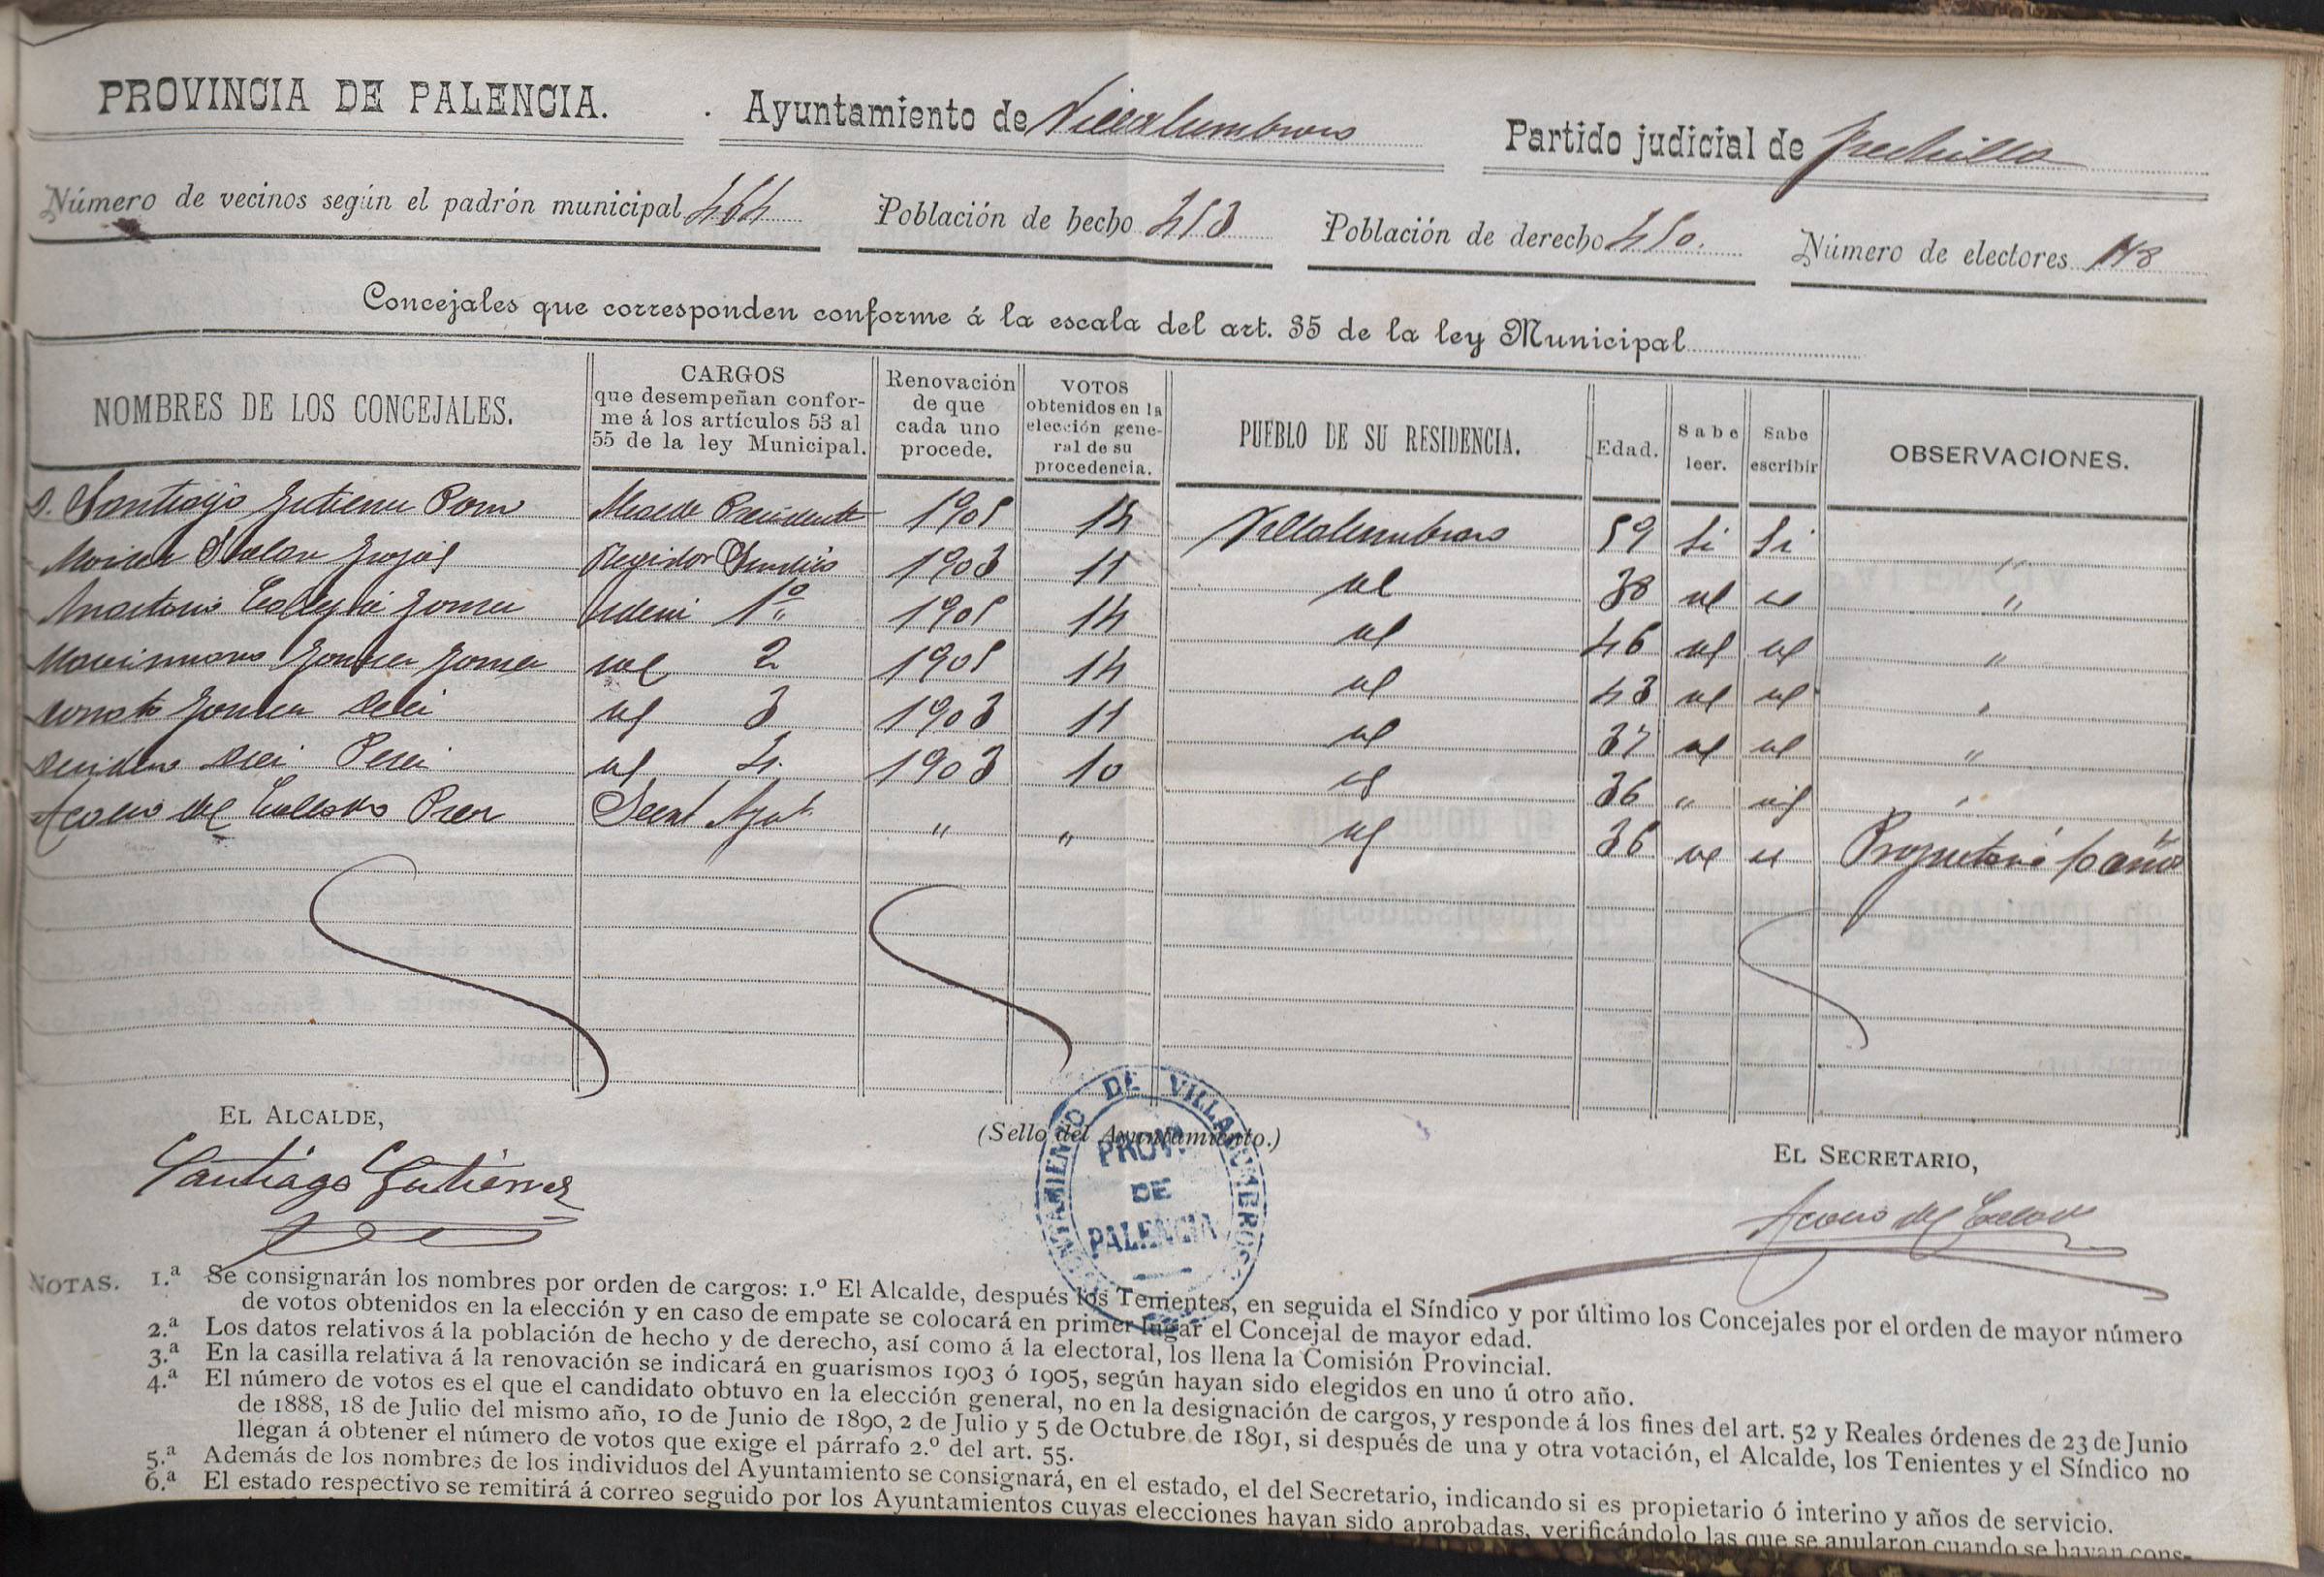 PROVINCIA DE PALENCIA. Ayuntamiento de Villalumbroso Partido judicial de Frechilla
Número de vecinos según el padrón municipal 464 Población de hecho 453 Población de derecho 450. Número de electores 118
Concejales que corresponden conforme á la escala del art. 35 de la ley Municipal
NOMBRES DE LOS CONCEJALES. CARGOS que desempeñan conforme á los artículos 53 al 55 de la ley Municipal. Renovación de que cada uno procede. VOTOS obtenidos en la elección general de su procedencia. PUEBLO DE SU RESIDENCIA. Edad. Sabe leer. Sabe escribir OBSERVACIONES.
D. Santiago Gutierrez Alcalde Presidente 1905 14 Villalumbroso 59 Si Si "
Regidor Sindico 1903 11 id 38 id id "
Gomez 1º 1905 14 id 46 id id "
Gomez id 2 1905 14 id 43 id id "
id 3 1903 11 id 37 id id "
id 4. 1903 10 id 36 " id "
Acacio del Secret Ayut. " " id 36 id id Propietario 10 años
EL ALCALDE,
(Sello del Ayuntamiento.)
EL SECRETARIO,
Santiago Gutiérrez
Acacio del
AYUNTAMIENTO DE VILLALUMBROSO
PROVA
DE
PALENCIA
NOTAS. 1.ª Se consignarán los nombres por orden de cargos: 1.º El Alcalde, después los Tenientes, en seguida el Síndico y por último los Concejales por el orden de mayor número
de votos obtenidos en la elección y en caso de empate se colocará en primer lugar el Concejal de mayor edad.
2.ª Los datos relativos á la población de hecho y de derecho, así como á la electoral, los llena la Comisión Provincial.
3.ª En la casilla relativa á la renovación se indicará en guarismos 1903 ó 1905, según hayan sido elegidos en uno ú otro año.
4.ª El número de votos es el que el candidato obtuvo en la elección general, no en la designación de cargos, y responde á los fines del art. 52 y Reales órdenes de 23 de Junio
de 1888, 18 de Julio del mismo año, 10 de Junio de 1890, 2 de Julio y 5 de Octubre de 1891, si después de una y otra votación, el Alcalde, los Tenientes y el Síndico no
llegan á obtener el número de votos que exige el párrafo 2.º del art. 55.
5.ª Además de los nombres de los individuos del Ayuntamiento se consignará, en el estado, el del Secretario, indicando si es propietario ó interino y años de servicio.
6.ª El estado respectivo se remitirá á correo seguido por los Ayuntamientos cuyas elecciones hayan sido aprobadas, verificándolo las que se anularon cuando se hayan cons-